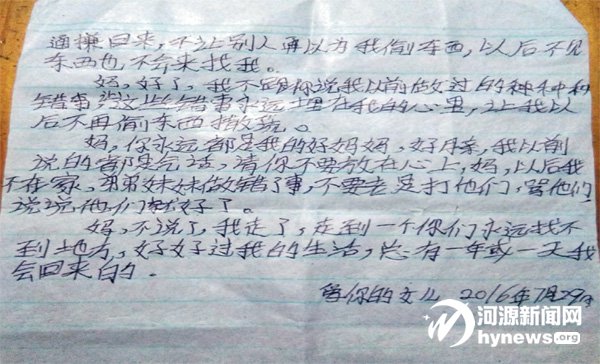 通搬回来，不让别人再以为我偷东西，以后不见
东西也不会来找我。
妈，好了，我不跟你说我以前做过的种种
错事当这些错事永远埋在我的心里，让我以
后不再偷东西撒谎。
妈，你永远都是我的好妈妈，好母亲，我以前
说的都是气话，请你不要放在心上，妈，以后我
不在家，弟弟妹妹做错了事，不要老是打他们，跟他们
说说，他们就好了。
妈，不说了，我走了，走到一个你们永远找不
到地方，好好过我的生活，总有一年或一天我
会回来的。
你的女儿 2016年7月29日
河源新闻网
hynews.org